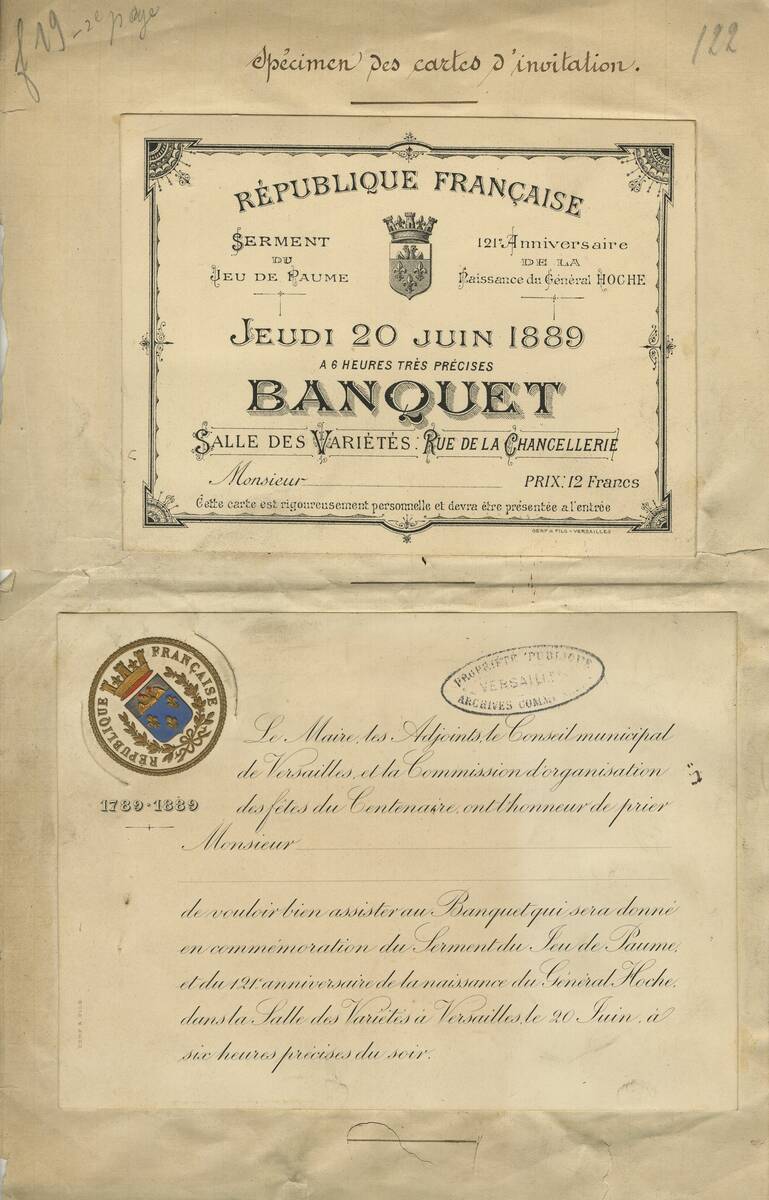 f 19 - 2e page
122
Spécimen des cartes d'invitation.
RÉPUBLIQUE FRANÇAISE
SERMENT
DU
JEU DE PAUME
121e Anniversaire
DE LA
Naissance du Général HOCHE
JEUDI 20 JUIN 1889
A 6 HEURES TRÈS PRÉCISES
BANQUET
SALLE DES VARIÉTÉS: RUE DE LA CHANCELLERIE
Monsieur
PRIX: 12 Francs
Cette carte est rigoureusement personnelle et devra être présentée à l'entrée
CERF & FILS - VERSAILLES
RÉPUBLIQUE FRANÇAISE
1789-1889
PROPRIÉTÉ PUBLIQUE
VERSAILLES
ARCHIVES COMM
Le Maire, les Adjoints, le Conseil municipal
de Versailles, et la Commission d'organisation
des fêtes du Centenaire, ont l'honneur de prier
Monsieur
de vouloir bien assister au Banquet qui sera donné
en commémoration du Serment du Jeu de Paume,
et du 121e anniversaire de la naissance du Général Hoche,
dans la Salle des Variétés à Versailles, le 20 Juin, à
six heures précises du soir.
CERF & FILS